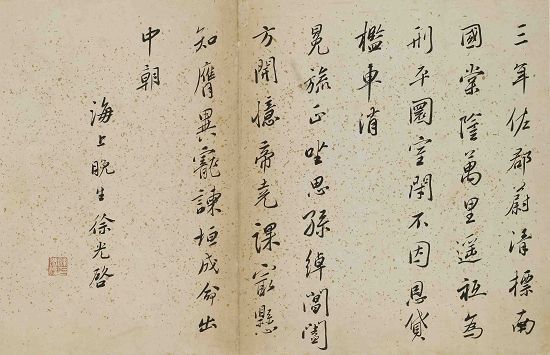 三年佐郡蔚清標南
國棠陰萬里遙祗為
刑平圜室閑不因恩貸
檻車消
冕旒正坐思孫綽閶闔
方開憶帝堯課最懸
知膺異寵諫垣成命出
中朝
海上晚生徐光啓